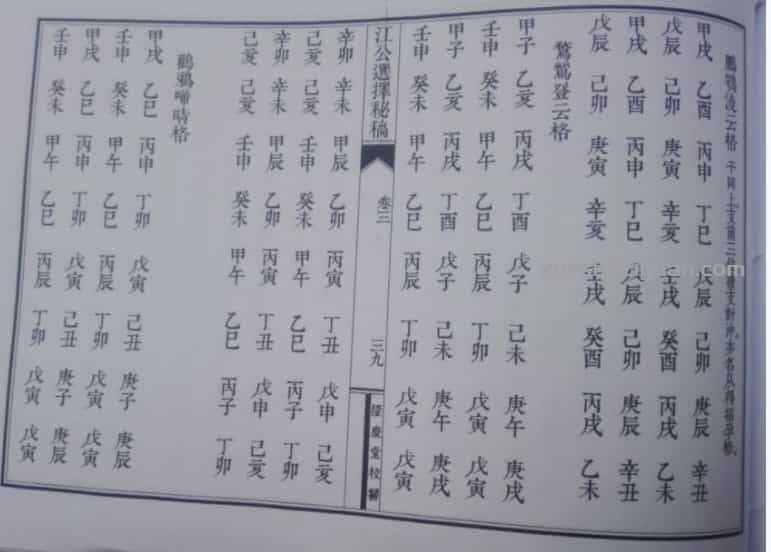 鵬鶚凌云格
甲戌 乙酉 丙申 丁巳 戊辰 己卯 庚辰 辛丑
戊辰 己卯 庚寅 辛亥 壬戌 癸酉 丙戌 乙未
甲戌 乙酉 丙申 丁巳 戊辰 己卯 庚辰 辛丑
戊辰 己卯 庚寅 辛亥 壬戌 癸酉 丙戌 乙未
鶩鷲登云格
甲子 乙亥 丙戌 丁酉 戊子 己未 庚午 庚戌
壬申 癸未 甲午 乙巳 丙辰 丁卯 戊寅 戊寅
甲子 乙亥 丙戌 丁酉 戊子 己未 庚午 庚戌
壬申 癸未 甲午 乙巳 丙辰 丁卯 戊寅 戊寅
江公選擇秘稿 卷三 三九
辛卯 辛未 甲辰 乙卯 丙寅 丁丑 戊申 己亥
己亥 己亥 壬申 癸未 甲午 乙巳 丙子 丁卯
辛卯 辛未 甲辰 乙卯 丙寅 丁丑 戊申 己亥
己亥 己亥 壬申 癸未 甲午 乙巳 丙子 丁卯
鸸鴉啼時格
甲戌 乙巳 丙申 丁卯 戊寅 己丑 庚子 庚辰
壬申 癸未 甲午 乙巳 丙辰 丁卯 戊寅 戊寅
甲戌 乙巳 丙申 丁卯 戊寅 己丑 庚子 庚辰
壬申 癸未 甲午 乙巳 丙辰 丁卯 戊寅 戊寅